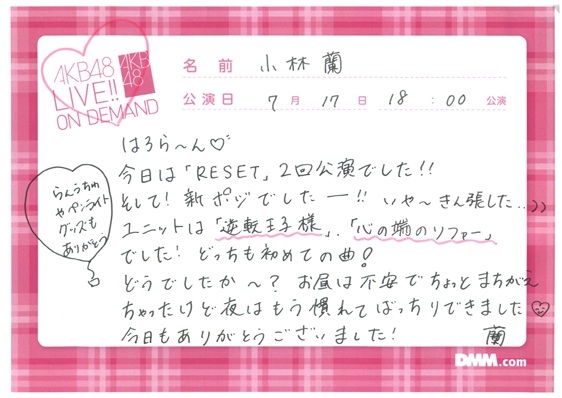 AKB48
LIVE!!
ON DEMAND
AKB
48
名前 小林 蘭
公演日 7月 17日 18:00 公演
はろら〜ん♡
今日は「RESET」2回公演でした!!
そして!新ポジでしたー!!いや〜きん張した...))
ユニットは「逆転王子様」、「心の端のソファー」
でした!どっちも初めての曲!
どうでしたか〜?お昼は不安でちょっとまちがえ
ちゃったけど夜はもう慣れてばっちりできました♡
今日もありがとうございました! 蘭
らんうちわ
やペンライト
グッズも
ありがとう
DMM.com